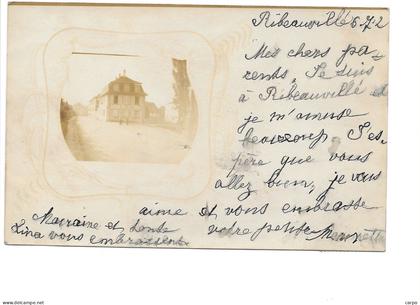 Ribeauvillé 6.7.2
Mes chers pa-
rents. Je suis
à Ribeauvillé et
je m'amuse
beaucoup. J'es-
père que vous
allez bien, je vous
aime et vous embrasse
votre petite
Marraine et tante
Lina vous embrassent